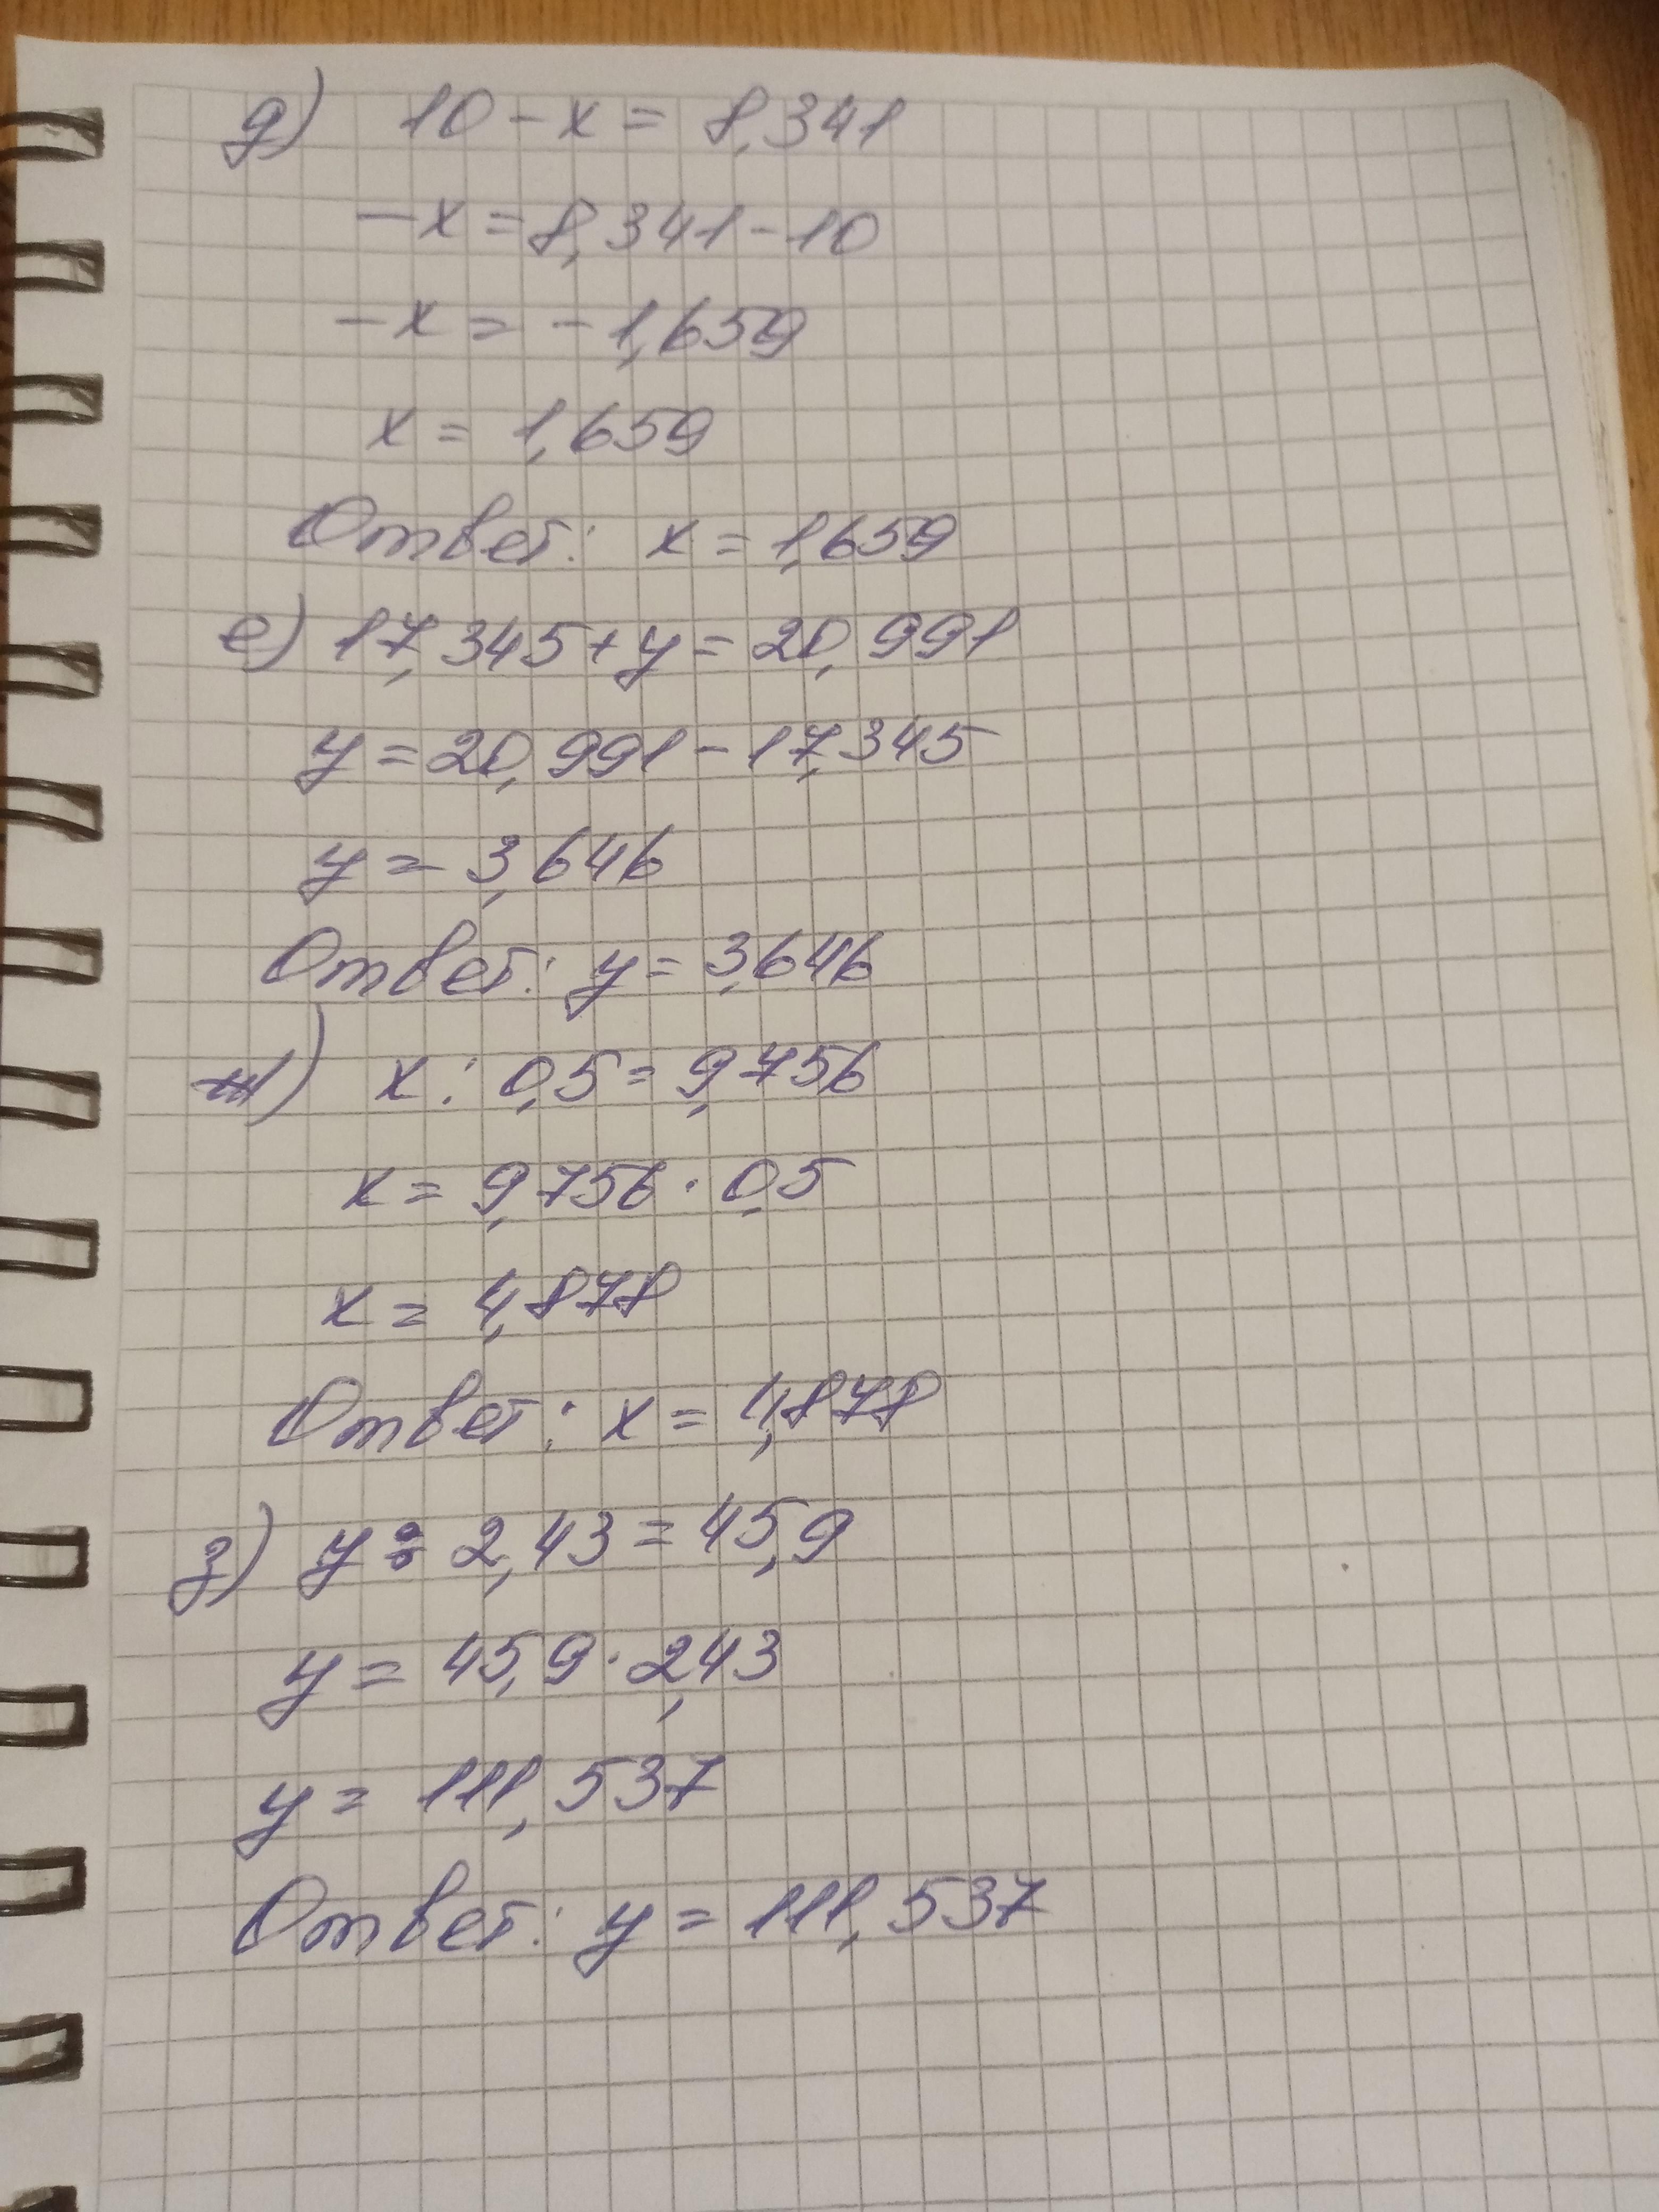 д) 10 - x = 8,341
-x = 8,341 - 10
-x = -1,659
x = 1,659
Ответ: x = 1,659
е) 17,345 + y = 20,991
y = 20,991 - 17,345
y = 3,646
Ответ: y = 3,646
ж) x : 0,5 = 9,756
x = 9,756 · 0,5
x = 4,878
Ответ: x = 4,878
з) y : 2,43 = 45,9
y = 45,9 · 2,43
y = 111,537
Ответ: y = 111,537